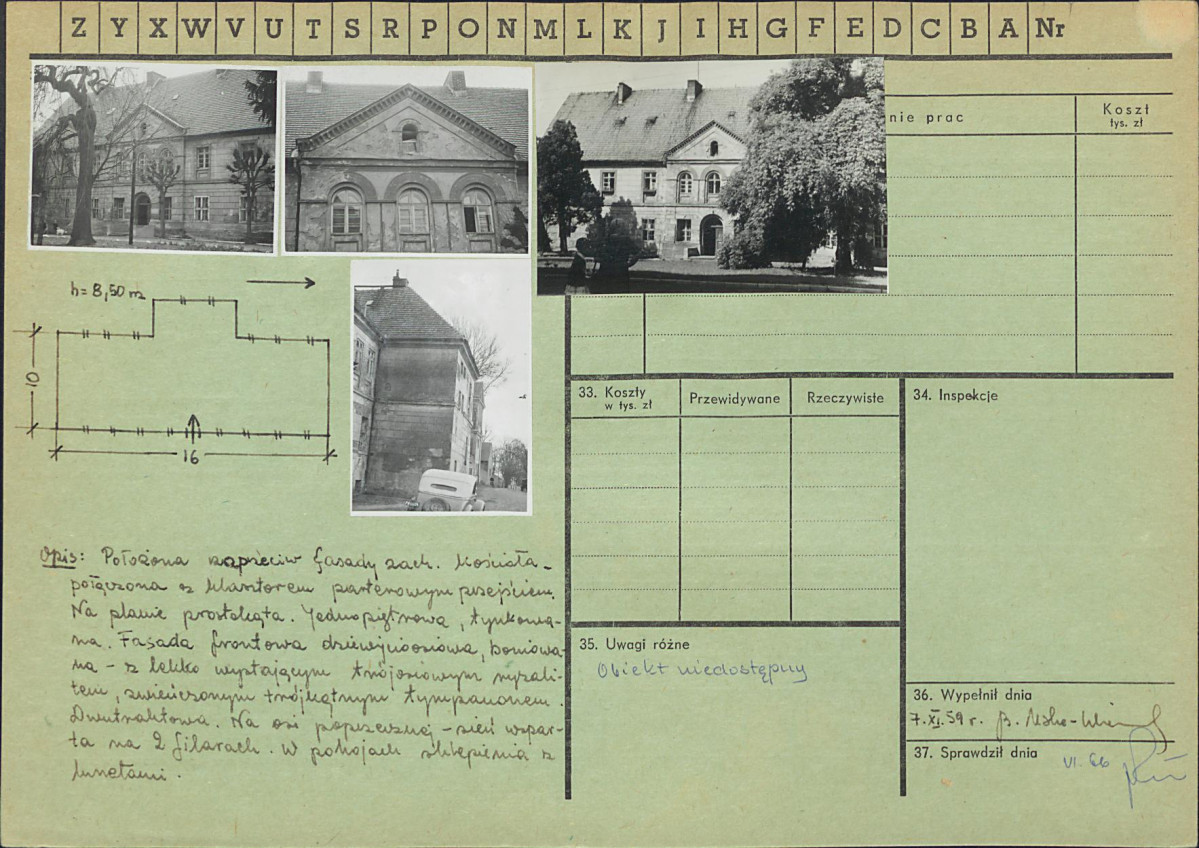 Z Y X W V U T S R P O N M L K J I H G F E D C B A Nr
nie prac
Koszt
tys. zł
h = 8,50 m
10
16
33. Koszty
w tys. zł
Przewidywane
Rzeczywiste
34. Inspekcje
Opis: Położona naprzeciw fasady zach. kościoła -
połączona z klasztorem parterowym przejściem.
Na planie prostokąta. Jednopiętrowa, tynkowa-
na. Fasada frontowa dziewięcioosiowa, boniowa-
na - z lekko wystającym trójosiowym ryzali-
tem, zwieńczonym trójkątnym tympanonem.
Dwutraktowa. Na osi poprzecznej - sień wspar-
ta na 2 filarach. W pokojach sklepienia z
lunetami.
35. Uwagi różne
Obiekt niedostępny
36. Wypełnił dnia
7.XI.59 r. B.
37. Sprawdził dnia
VI. 66